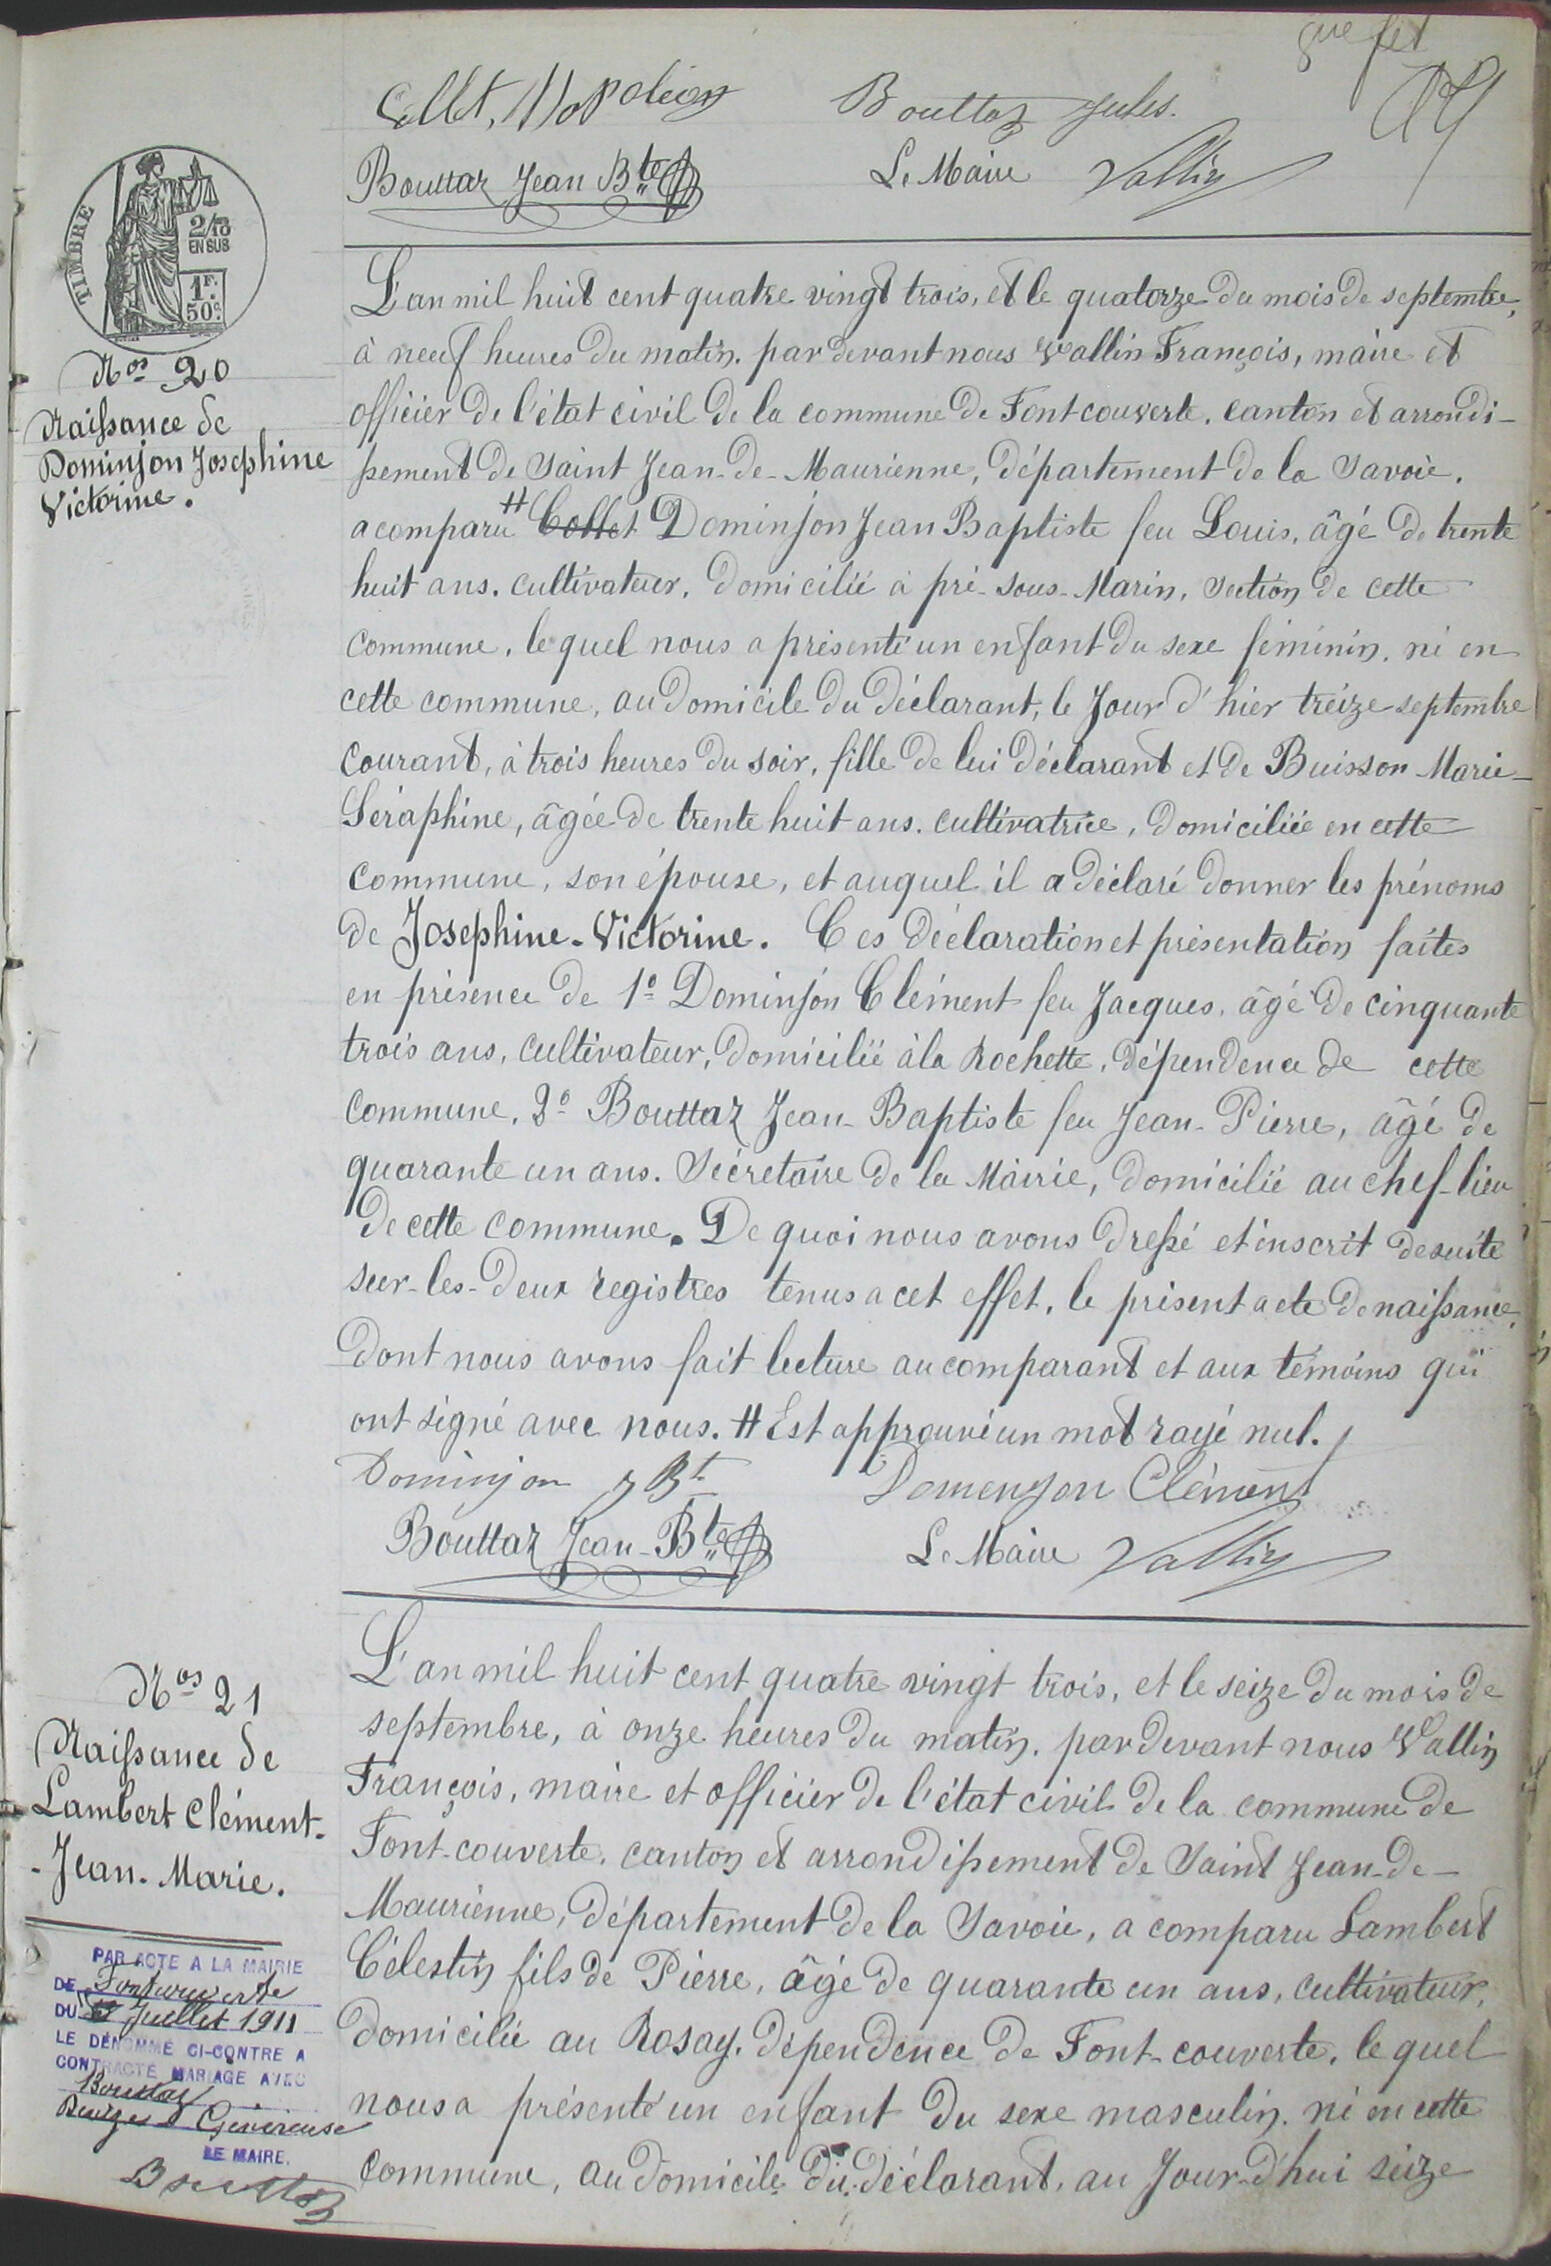 Collet, Napoléon Bouttaz Jules.
Bouttaz Jean Bte Le Maire Vallin
TIMBRE
2/10
EN SUS
1F.
50c.
Nos 20
Naissance de
Dominjon Josephine
Victorine.
L'an mil huit cent quatre vingt trois, et le quatorze du mois de septembre,
à neuf heures du matin. par devant nous Vallin François, maire et
officier de l'état civil de la commune de Fontcouverte. canton et arrondi-
ssement de Saint Jean-de-Maurienne, département de la Savoie.
a comparu # Collet Dominjon Jean Baptiste feu Louis, âgé de trente
huit ans. cultivateur, domicilié à pré-sous-Marin, section de cette
commune, le quel nous a présenté un enfant du sexe féminin. né en
cette commune, au domicile du déclarant, le Jour d'hier treize septembre
courant, à trois heures du soir, fille de lui déclarant et de Buisson Marie-
Séraphine, âgée de trente huit ans. cultivatrice, domiciliée en cette
commune, son épouse, et auquel il a déclaré donner les prénoms
de Josephine-Victorine. Ces déclaration et présentation faites
en présence de 1o Dominjon Clément feu Jacques, âgé de cinquante
trois ans, cultivateur, domicilié à la Rochette, dépendence de cette
commune, 2o Bouttaz Jean-Baptiste feu Jean-Pierre, âgé de
quarante un ans. Sécretaire de la Mairie, domicilié au chef-lieu
de cette commune. De quoi nous avons dressé et inscrit de suite
sur-les-deux registres tenus a cet effet, le présent acte de naissance,
dont nous avons fait lecture au comparant et aux témoins qui
ont signé avec nous. # Est approuvé un mot rayé nul.
Dominjon J Bt Domenjon Clément
Bouttaz Jean-Bte Le Maire Vallin
Nos 21
Naissance de
Lambert Clément-
-Jean-Marie.
L'an mil huit cent quatre vingt trois, et le seize du mois de
septembre, à onze heures du matin. par devant nous Vallin
François, maire et officier de l'état civil de la commune de
Font-couverte. canton et arrondissement de Saint Jean-de-
Maurienne, département de la Savoie, a comparu Lambert
Célestin fils de Pierre, âgé de quarante un ans, cultivateur,
domicilié au Rosay, dépendence de Font-couverte, le quel
nous a présenté un enfant du sexe masculin. né en cette
commune, au domicile du déclarant, au Jour-d'hui seize
PAR ACTE A LA MAIRIE
DE Fontcouverte
DU Juillet 1911
LE DÉNOMMÉ CI-CONTRE A
CONTRACTÉ MARIAGE AVEC
Bouttaz
Généreuse
LE MAIRE,
Bouttaz